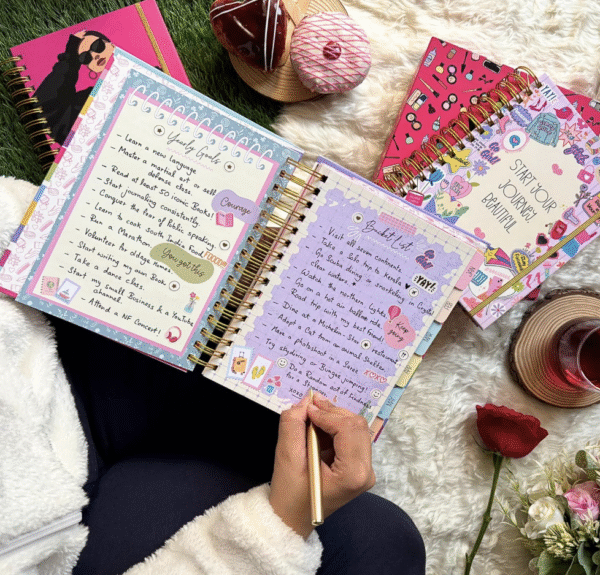 Yearly Goals
- Learn a new language
- Master a martial art or self
defense class
- Read at least 50 iconic Books!
- Start journaling consistently.
- Conquer the fear of Public speaking
- Learn to cook South Indian Food
- Run a Marathon
- Volunteer for old age Homes.
- Start writing my own Book
- Take a dance class.
- Start my small Business & YouTube
channel.
- Attend a NF Concert!
Courage
You got this
FOCUS
Bucket List
- Visit all seven continents
- Take a solo trip to Kerala
- Go Scuba diving or snorkeling in Crystal
Clear waters
- Watch the northern lights
- Go on a hot air balloon ride
- Road trip with my best friends
- Dine at a Michelin restaurant
- Adopt a Cat from an animal Shelter
- Have a photoshoot in a Saree
- Try skydiving or Bungee jumping!
- Do a Random act of kindness
for a Stranger
xoxo
YAY!
Keep going
START YOUR
JOURNEY
BEAUTIFUL
YAY!